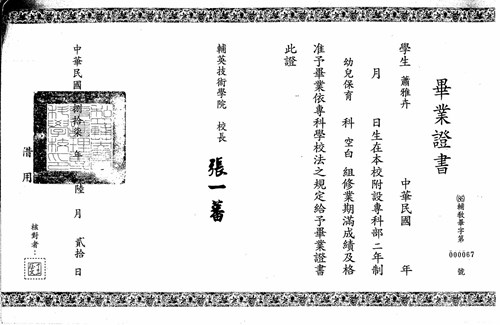 畢業證書
輔教畢字第 000067 號
學生 蕭雅卉 中華民國 年
月 日生在本校附設專科部二年制
幼兒保育 科 空白 組修業期滿成績及格
准予畢業依專科學校法之規定給予畢業證書
此證
輔英技術學院 校長 張一蕃
中華民國 捌拾柒 年 陸 月 貳拾 日
借用
核對者：